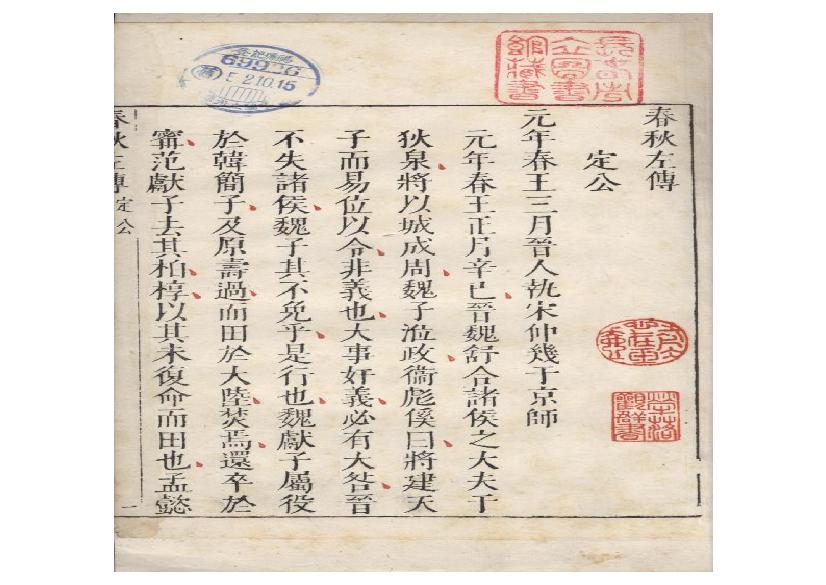 立圖書
館藏書
69926
2.10.15
春秋左傳
定公
元年春王三月晉人執宋仲幾于京師
元年春王正月辛巳晉魏舒合諸侯之大夫于
狄泉將以城成周魏子涖政衞彪傒曰將建天
子而易位以令非義也大事奸義必有大咎晉
不失諸侯魏子其不免乎是行也魏獻子屬役
於韓簡子及原壽過而田於大陸焚焉還卒於
甯范獻子去其柏椁以其未復命而田也孟懿
春秋左傳 定公 一
落
觀群書